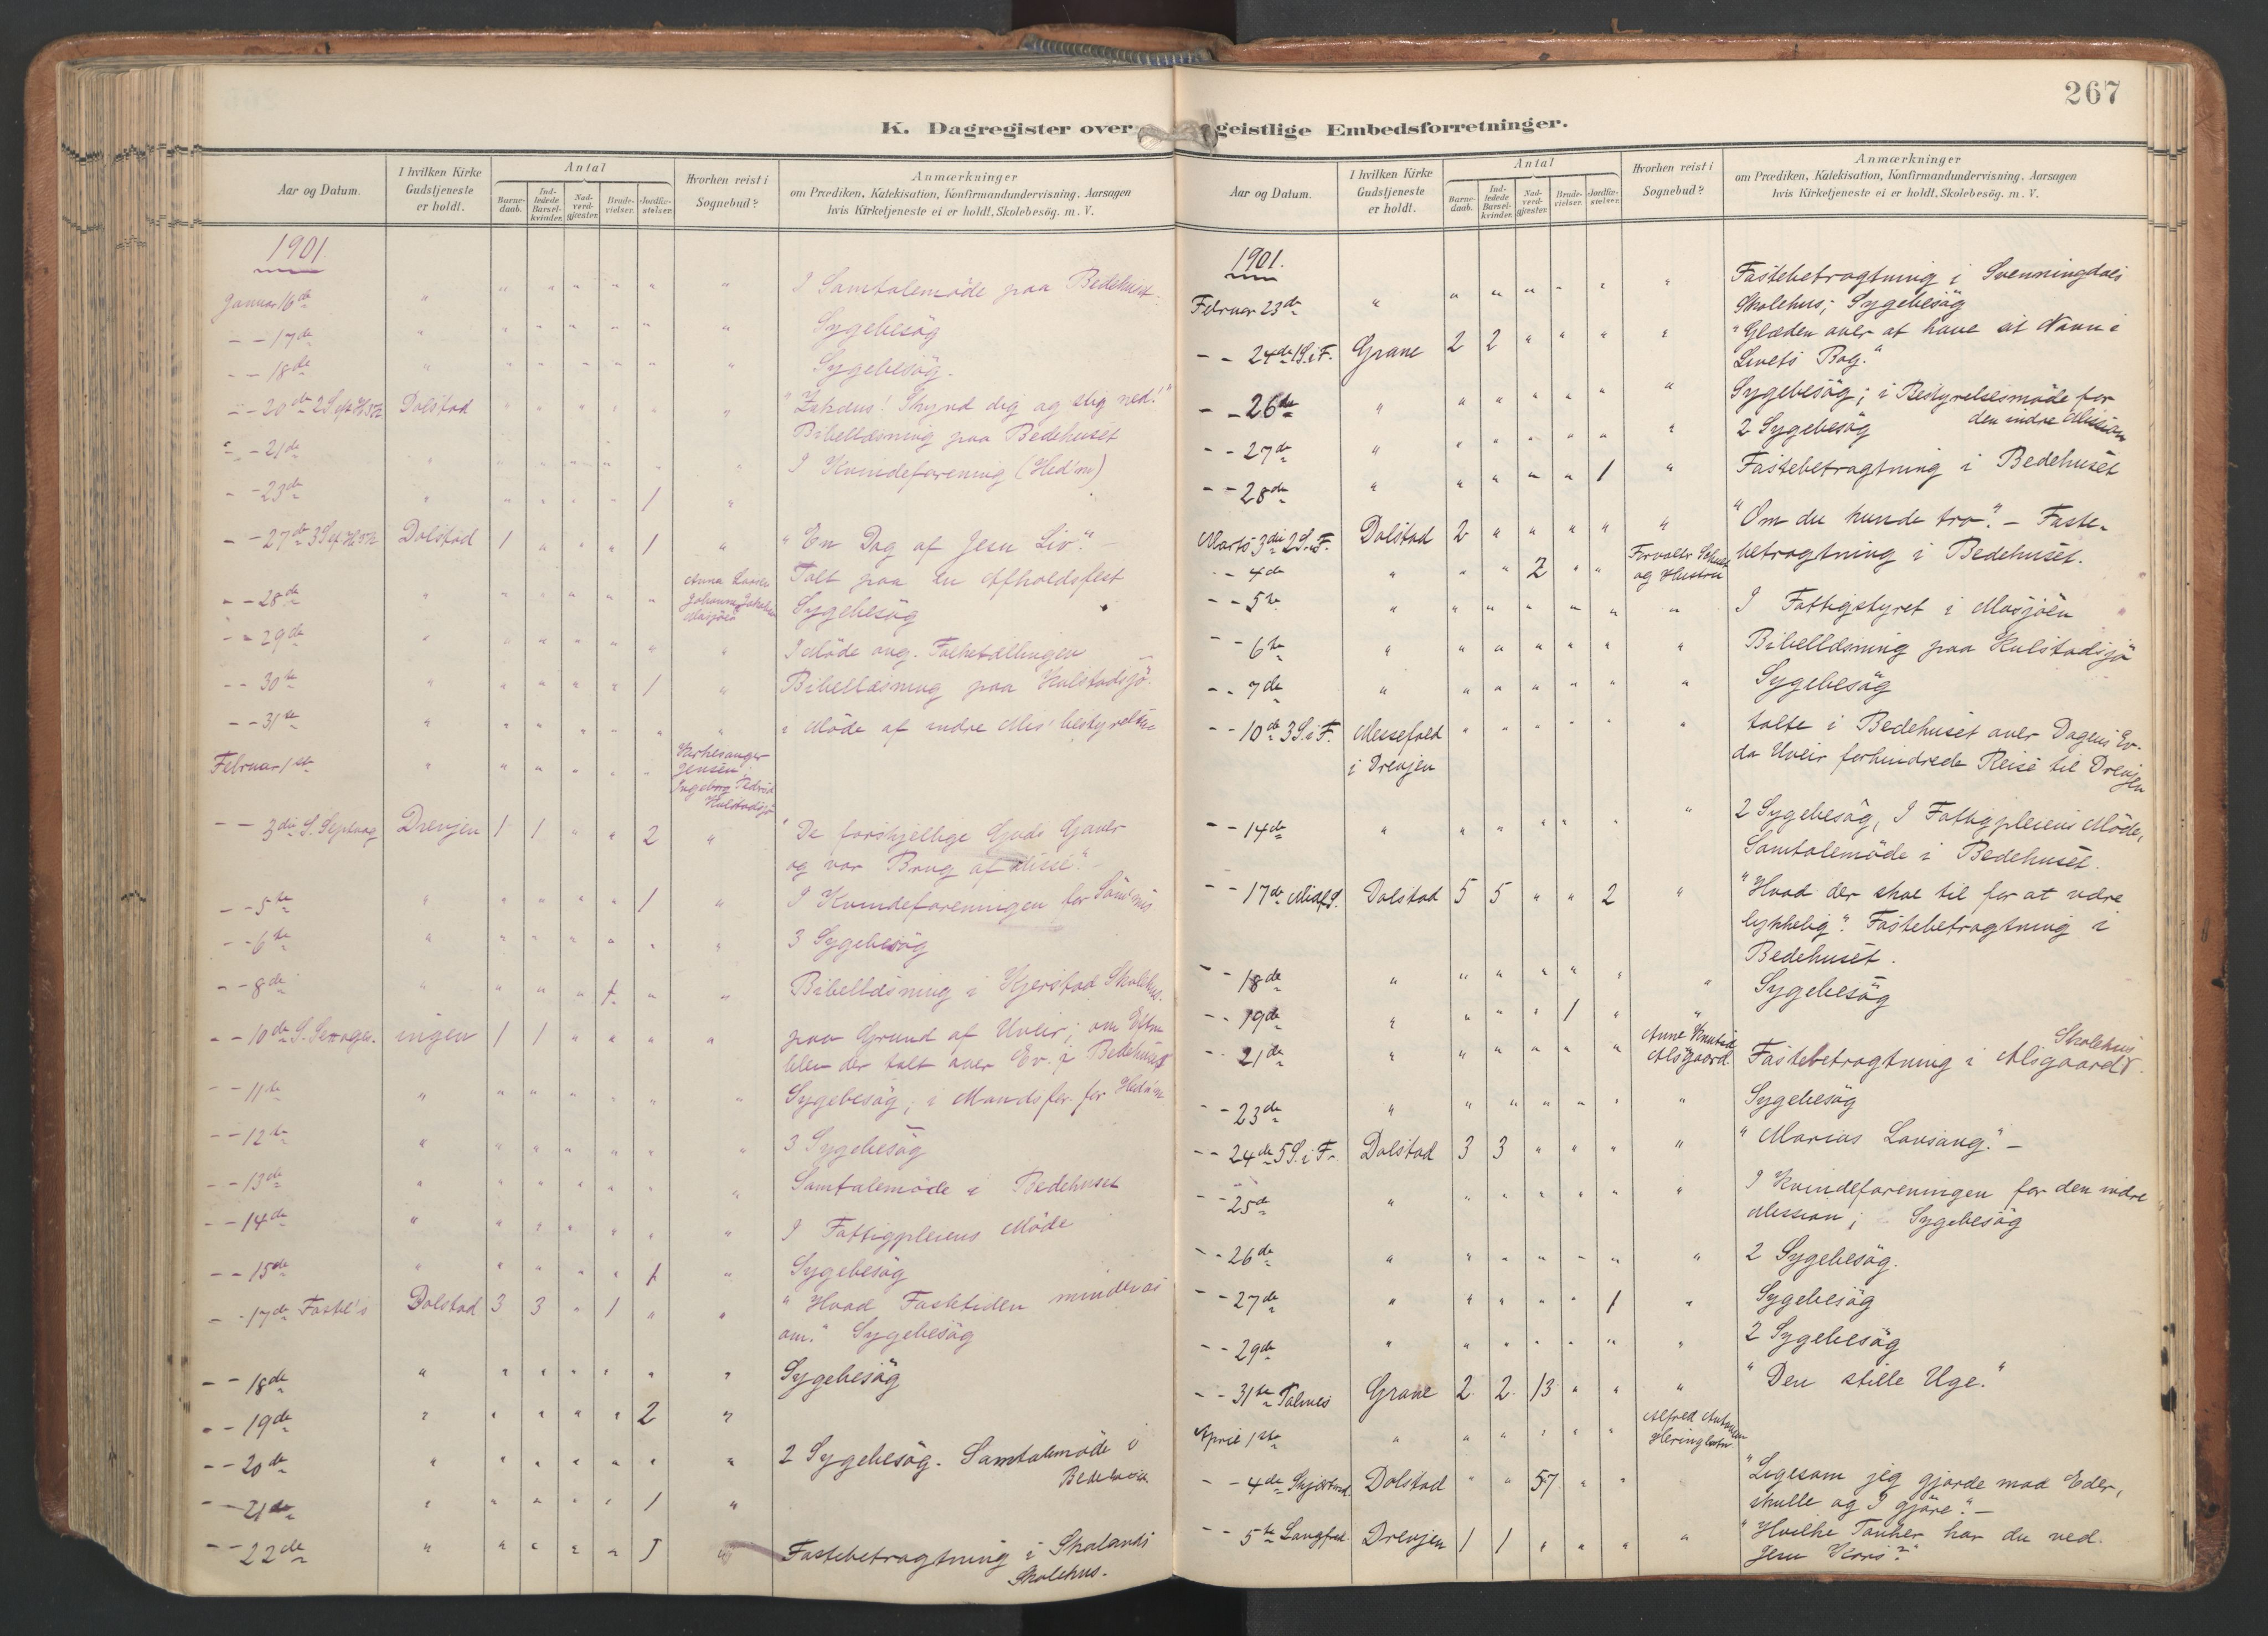 267
K. Dagregister over geistlige Embedsforretninger.
Aar og Datum. I hvilken Kirke Gudstjeneste er holdt. Antal Barnedaab. Indledede Barselkvinder. Nadverdgjæster. Brudevielser. Jordfæstelser. Hvorhen reist i Sognebud? Anmærkninger om Prædiken, Katekisation, Konfirmandundervisning, Aarsagen hvis Kirketjeneste ei er holdt, Skolebesög. m. V.
1901.
Januar 16de " " " " " " " I Samtalemöde paa Bedehuset.
- - 17de " " " " " " " Sygebesög
- - 18de " " " " " " " Sygebesög.
- - 20de 2 S. eft. H3K Dolstad " " " " " " "Zakæus! Skynd dig og stig ned!"
Bibellæsning paa Bedehuset
- - 21de " " " " " " " I Kvindeforening (Hed'm)
- - 23de " " " " " 1 "
- - 27de 3 S. ef. H3K Dolstad 1 " " " 1 " "En Dag af Jesu Liv". -
Talt paa en Afholdsfest
- - 28de " " " " " " Anna Larsen Johanna Jakobsen Mosjöen Sygebesög
- - 29de " " " " " " " I Möde ang. Folketællingen
- - 30te " " " " " 1 " Bibellæsning paa Kulstadsjö.
- - 31te " " " " " " " i Möde af indre Mis' bestyrelse
Februar 1ste " " " " " " Kirkesanger Jensen. Ingeborg Kulstadsjö
- - 3die S. Septuag Drevjen 1 1 " " 2 " "De forskjellige Guds Gaver
og vor Brug af disse". -
- - 5te " " " " " 1 " I Kvindeforeningen for
- - 6te " " " " " " " 3 Sygebesög
- - 8de " " " " 1 " " Bibellæsning i Kjerstad Skolehus.
- - 10de S. Sexages. ingen 1 1 " " " " paa Grund af Uveir; om Eftm
blev der talt over Ev. i Bedehuset
- - 11te " " " " " " " Sygebesög; i Mandsfor. for Hed'm.
- - 12te " " " " " " " 3 Sygebesög
- - 13de " " " " " " " Samtalemöde i Bedehuset
- - 14de " " " " " " " I Fattigpleiens Möde
- - 15de " " " " " 1 " Sygebesög
- - 17de Fastel's Dolstad 3 3 " 1 " " "Hvad Fastetiden minder os
om." Sygebesög
- - 18de " " " " " " " Sygebesög
- - 19de " " " " " 2 "
- - 20de " " " " " " " 2 Sygebesög. Samtalemöde i
Bedehuset
- - 21de " " " " " 1 "
- - 22de " " " " " 1 " Fastebetragtning i Skalands
Skolehus.
Aar og Datum. I hvilken Kirke Gudstjeneste er holdt. Antal Barnedaab. Indledede Barselkvinder. Nadverdgjæster. Brudevielser. Jordfæstelser. Hvorhen reist i Sognebud? Anmærkninger om Prædiken, Katekisation, Konfirmandundervisning, Aarsagen hvis Kirketjeneste ei er holdt, Skolebesög. m. V.
1901.
Februar 23de " " " " " " " Fastebetragtning i Svenningdals
Skolehus; Sygebesög
- - 24de 1 S. i F. Grane 2 2 " " " " "Glæden over at have sit Navn i
Livets Bog."
- - 26de " " " " " " " Sygebesög; i Bestyrelsesmöde for
den indre Mission
- - 27de " " " " " " " 2 Sygebesög
- - 28de " " " " " 1 " Fastebetragtning i Bedehuset
Marts 3die 2 S. i F. Dolstad 2 " " " " " "Om du kunde tro". - Faste-
betragtning i Bedehuset.
- - 4de " " " 2 " " Forvalter og Hustru
- - 5te " " " " " " " I Fattigstyret i Mosjöen
- - 6te " " " " " " " Bibellæsning paa Kulstadsjö
- - 7de " " " " " " " Sygebesög
- - 10de 3 S. i F. Messefald i Drevjen " " " " " " talte i Bedehuset over Dagens Ev.
da Uveir forhindrede Reise til Drevjen
- - 14de " " " " " " " 2 Sygebesög, I Fattigpleiens Möde,
Samtalemöde i Bedehuset.
- - 17de Midf.S. Dolstad 5 5 " " 2 " "Hvad der skal til for at være
lykkelig". Fastebetragtning i
Bedehuset.
- - 18de " " " " " " " Sygebesög
- - 19de " " " " 1 " "
- - 21de " " " " " " Anne Knutsd. Alsgaard. Fastebetragtning i Alsgaard Skolehus.
- - 23de " " " " " " " Sygebesög
- - 24de 5 S. i F. Dolstad 3 3 " " " " "Marias Lovsang". -
- - 25de " " " " " " " I Kvindeforeningen for den indre
Mission; Sygebesög
- - 26de " " " " " " " 2 Sygebesög.
- - 27de " " " " " 1 " Sygebesög
- - 29de " " " " " " " 2 Sygebesög
- - 31te Palmes Grane 2 2 13 " " " "Den stille Uge."
April 1ste " " " " " " Alfred Antonsen
- - 4de Skjærtorsd. Dolstad " " 57 " " "Ligesom jeg gjorde mod Eder,
skulle og I gjöre". -
- - 5te Langfred. Drevjen 1 1 " " " " "Hvilke Tanker har du ved
Jesu Kors?"